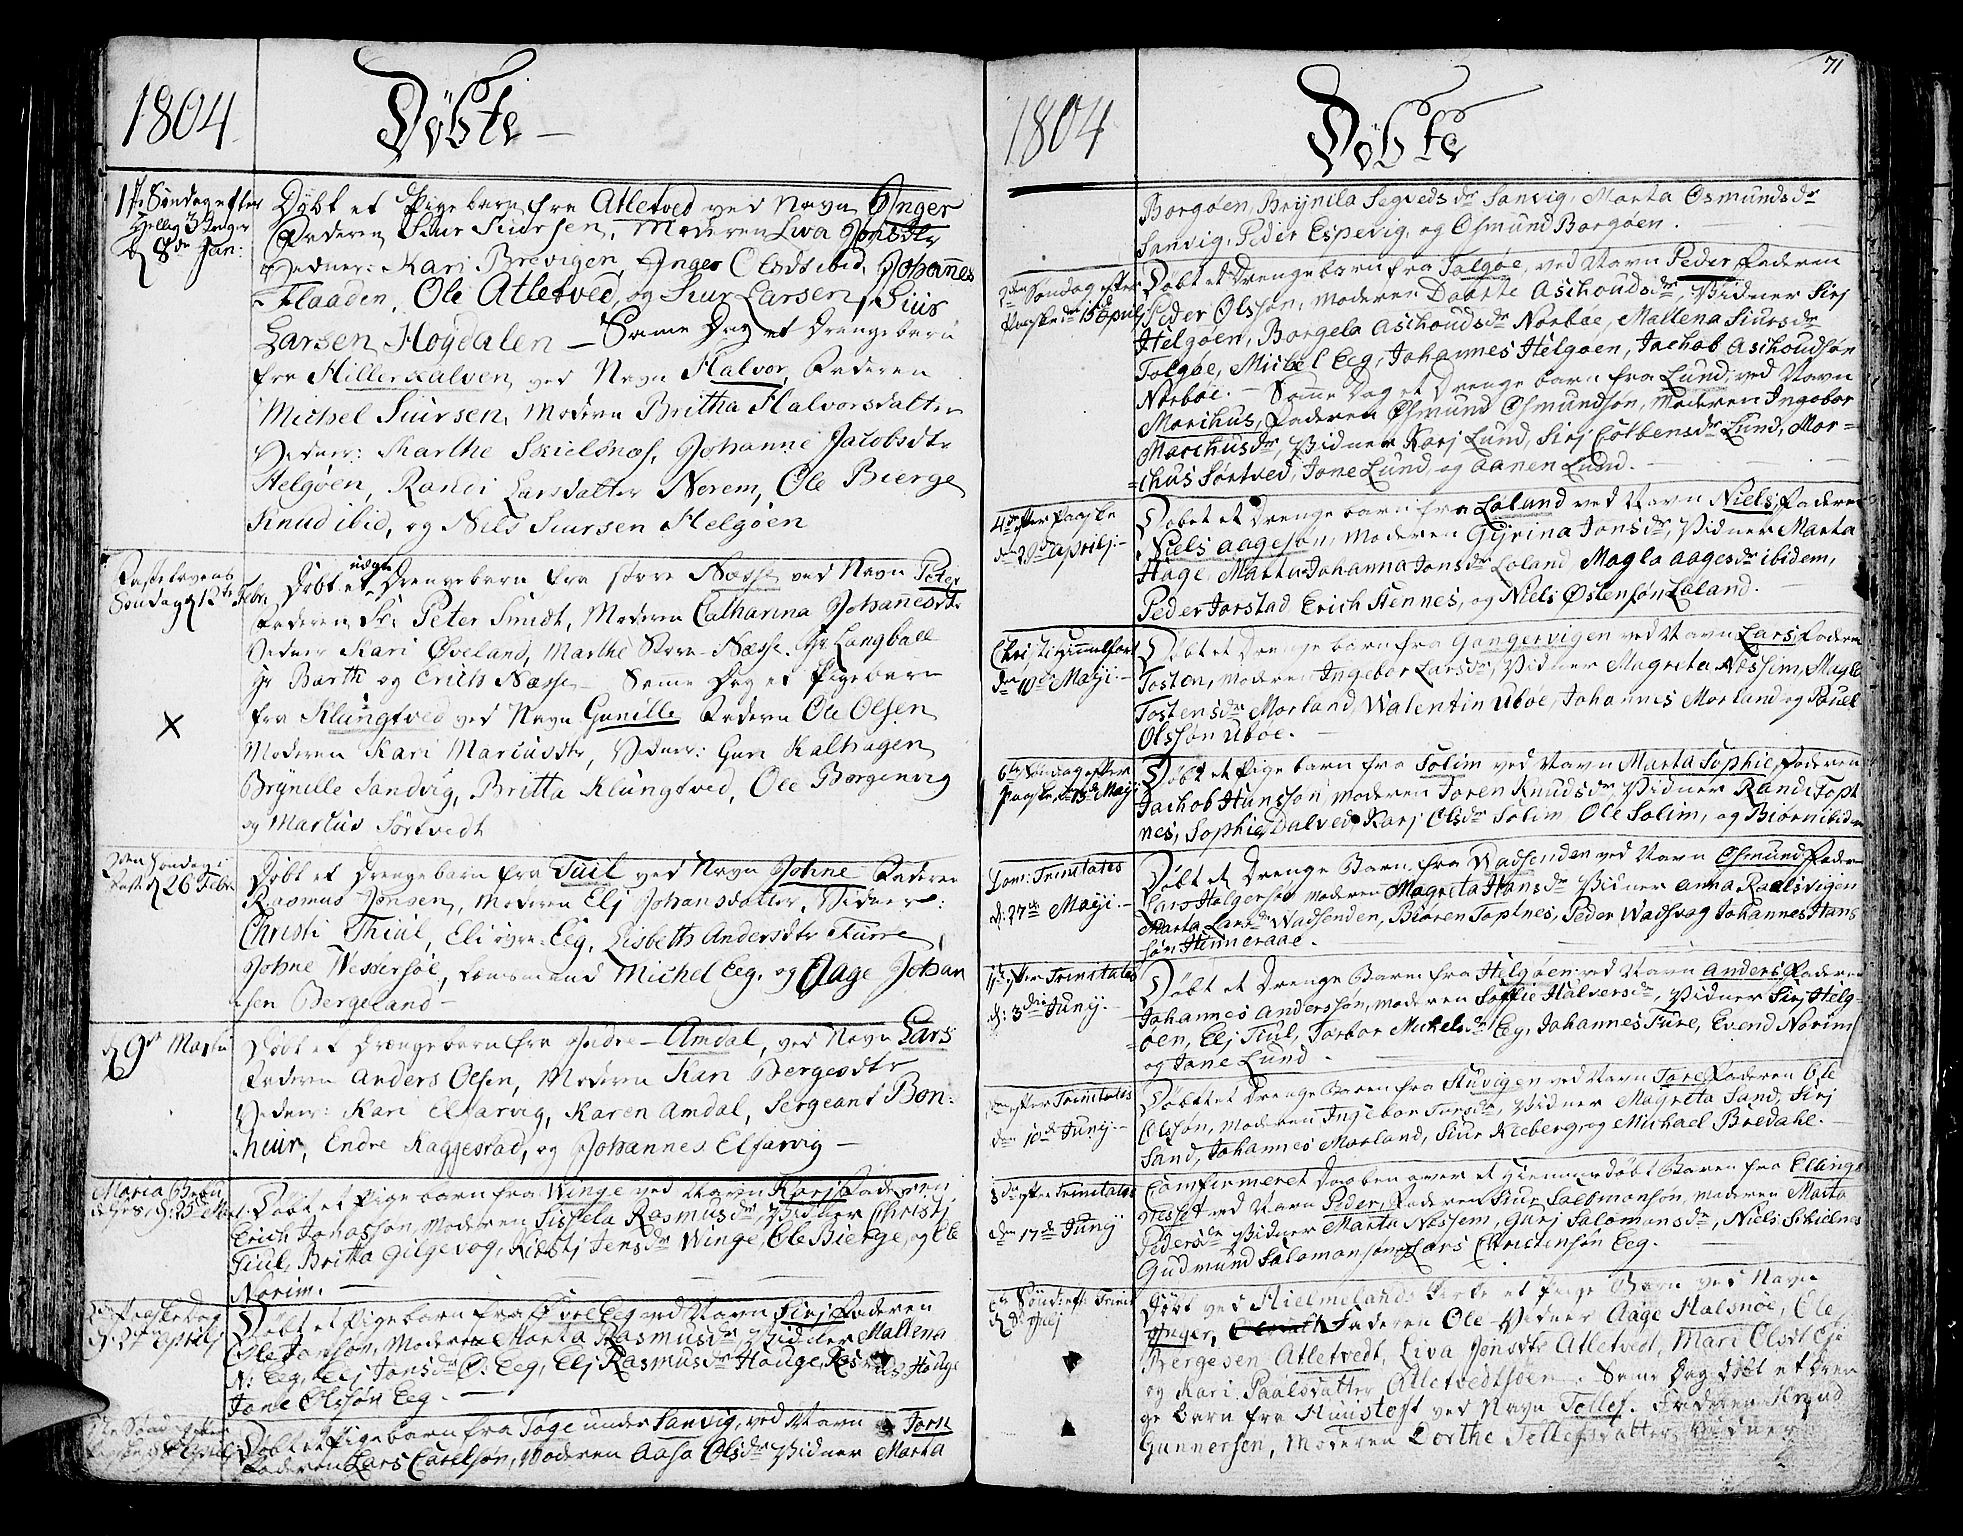 1804
Döbte
1te Søndag efter
Hellig 3 Konger
d 8de Jan:
Döbt et Pige barn fra Atletved ved Navn Inger
Faderen Siur Siursen, Moderen Liva Jonsdtr
Vedner: Kari Brevigen, Inger Olsdt ibid, Johannes
Flaaden, Ole Atletved, og Siur Larsen, Sius
Larsen Høgdalen — Same Dag et Drengebarn
fra Hillerkalven ved Navn Halvor, Faderen
Michel Siursen, Modern Britha Halvorsdatter
Vedner: Marthe Skielsnæs, Johanne Jacobsdtr
Helgøen, Randi Larsdatter Nerem, Ole Bierge
Knud ibid, og Nils Siursen Helgøen
Fastelavens
Søndag d 12te Febr.
Döbt et uægte Drengebarn fra store Næsse ved Navn Peter
Faderen Sr. Peter Smidt, Moderen Catharina Johanesdtr
Vedner Kari Øveland, Marthe Store-Næsse, Hr Langball
Hr Barth og Erich Næsse — Same Dag et Pigebarn
fra Klungtved ved Navn Gunille Fadern Ole Olsen
Moderen Kari Marcusdtr, Vedner: Guri Kalhagen
Brynille Sandvig, Britta Klungtved, Ole Borgenvig
og Marcus Sørtvedt
2den Søndag i
Fast d 26 Febr
Döbt et Drengebarn fra Tuil ved Navn Johne Faderen
Rasmus Jonsen, Moderen Elj Johansdatter, Vidner:
Christi Thiul, Eli øvre-Eeg, Lisbeth Andersdtr Furre
Johne Westersøe, Lensmand Michel Eeg, og Aage Johan
sen Bergeland —
d 9de Martii
Döbt et Drængebarn fra Indre-Amdal, ved Navn Lars
Fadern Anders Olsen, Modern Kari Bergesdtr
Vedner: Kari Elfarvig, Karen Amdal, Sergeant Bon-
heur, Endre Raggestad, og Johannes Elfarvig —
Maria Bebu
delses, d: 25 Mart.
Döbt et Pige barn fra Winge ved Navn Karj Faderen
Erich Jonasson, Moderen Sissela Rasmusdr Vidner Christj
Tiul, Britta Gilgevog, Kirstj Jensdr Winge, Ole Bierge, og Ole
Norim. —
2den Paaskedag
d: 2de Aprilj
Döbt et Pige barn fra Øvre Eeg ved Navn Sirj Faderen
Ole Jonson, Moderen Marta Rasmusdr Vidner Mallena
N: Eeg, Elj Jonsdr O: Eeg, Elj Rasmusdr Houge, Rasmus Houge
Jone Olssøn Eeg. —
Döbt et Pige barn fra Toge under Sanvig, ved Navn Torn
Faderen Lars Carelsøn, Moderen Aasa Olsdr Vidner Marta
71
1804
Döbte
Borgøen, Brynila Segvedsdr Sanvig, Marta Osmundsdr
Sanvig, Peder Espevig, og Osmund Borgøen.
2den Søndag efter
Paaske d 15 Aprilj
Döbt et Drengebarn fra Tolgøe, ved Navn Peder, Faderen
Peder Olssøn, Moderen Doorte Aschoudsdr, Vidner Sirj
Helgøen, Borgela Aschoudsdr Norbøe, Mallena Siursdr
Tolgøe, Michel Eeg, Johannes Helgøen, Jachob Aschoudsøn
Norbøe. — Same Dag et Drenge barn fra Lund, ved Navn
Morchus, Faderen Osmund Osmundsøn, Moderen Ingebor
Marchusdr, Vidner Karj Lund, Sirj Colbensdr Lund, Mor-
chus Sørtved, Jone Lund og Aanen Lund.
4de efter Paaske
d 29de Aprilj:—
Döbet et Drenge barn fra Loland ved Navn Niels, Faderen
Niels Aagesøn, Moderen Gyrina Jonsdr, Vidner Marta
Hage, Marta Johanna Jonsdr Loland, Magla Aagesdr ibidem,
Peder Jorstad, Erich Hennes, og Niels Østensøn Loland.
Christi Himmelfart
den 10de Maji:—
Döbt et Drenge barn fra Gangervigen ved Navn Lars, Faderen
Tosten, Moderen Ingebor Larsdr, Vidner Magreta Nessem, Magla
Tostensdr Morland, Walentin Uboe, Johannes Morland og Pouel
Olssøn Uboe. —
6te Søndag efter
Paaske, d 13de Maji
Döbt et Pige barn fra Solim ved Navn Marta Sophie, Faderen
Jachob Hunssøn, Moderen Joren Knudsdr Vidner Randi Topt
nes, Sophia Dalved, Karj Olsdr Solim Ole Solim, og Biørn ibidem
Dom: Trinitates
d: 27de Maji —
Döbt et Drenge Barn fra Wadsenden ved Navn Osmund, Faderen
Lars Holgersøn Moderen Magreta Hansdr Vidner Anna Raalsvigen
Marta Larsdr Wadsenden, Biøren Toptnes, Peder Wadsvog Johannes Hans
søn Hinneraae.
1ste efter Trinitates
d: 3die Junij.—
Döbt et Drenge Barn fra Helgøen ved Navn Anders, Faderen
Johannes Anderssøn, Moderen Soffie Halversdr, Vidner Sirj Helg-
øen, Elj Tiul, Torbor Michelsdr Eeg, Johannes Fure, Evend Norim
og Jone Lund.
2den efter Trinitates
den 10de Junij:—
Döbt et Drenge Baren fra Stuvigen ved Navn Tore, Faderen Ole
Olssøn, Moderen Ingebor Torsdr, Vidner Magreta Sand, Sirj
Sand, Johannes Morland, Siur Kleberg, og Michael Bredahl.
3de efter Trinitates
den 17de Junij
Confirmeret Daaben over et hiemmedøbt Baren fra Elling
nesset ved Navn Peder, Faderen Siur Salomonsøn, Moderen Marta
Pedersdr Vidner Marta Nessem, Gurj Salomonsdr, Niels Skielnes
Gudmund Salomonsøn, Lars Christensøn Eeg.
6te Sønd: eft: Trinit
d 8de Julj
Döbt ved Hielmelands Kirke et Pige Barn ved Navn
Inger, Faderen Ole — Vedner Aage Halsnøe, Ole
Bergesen Atletvedt, Liva Jonsdtr Atletved, Mari Olsdt Eie
og Kari Paalsdatter Atletvedtsøen. Same Dag Döbt et Dren
ge barn fra Huustoft ved Navn Tellef. Faderen Knud
Gunnersen, Moderen Dorthe Tellefsdatter, Vidner